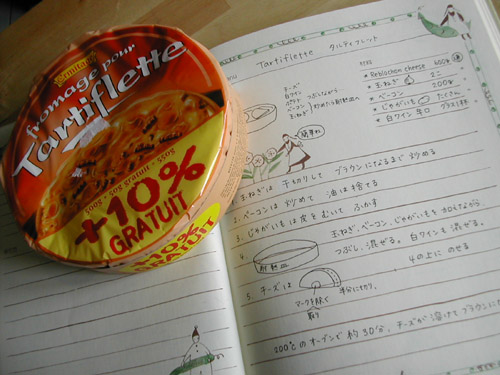 ermitage
fromage pour
Tartiflette
500g + 50g gratuit = 550g
+10%
GRATUIT
+10%
GRATUIT
Tartiflette タルティフレット
* Reblochon cheese 600g
* 玉ねぎ 2コ
* ベーコン 200g
* じゃがいも たくさん
* 白ワイン辛口 グラス1杯
チーズ
白ワイン
ベーコン
玉ねぎ
簡単
1. 玉ねぎは千切りして ブラウンになるまで炒める
2. ベーコンは炒めて 油は捨てる
3. じゃがいもは皮をむいて ふかす
4. 玉ねぎ、ベーコン、じゃがいもを 加えながら、
つぶし、混ぜる。白ワインも混ぜる。
耐熱皿
5. チーズは 半分に切り、 4の上に のせる
マークを除く
200℃のオーブンで約30分、チーズが溶けてブラウンに